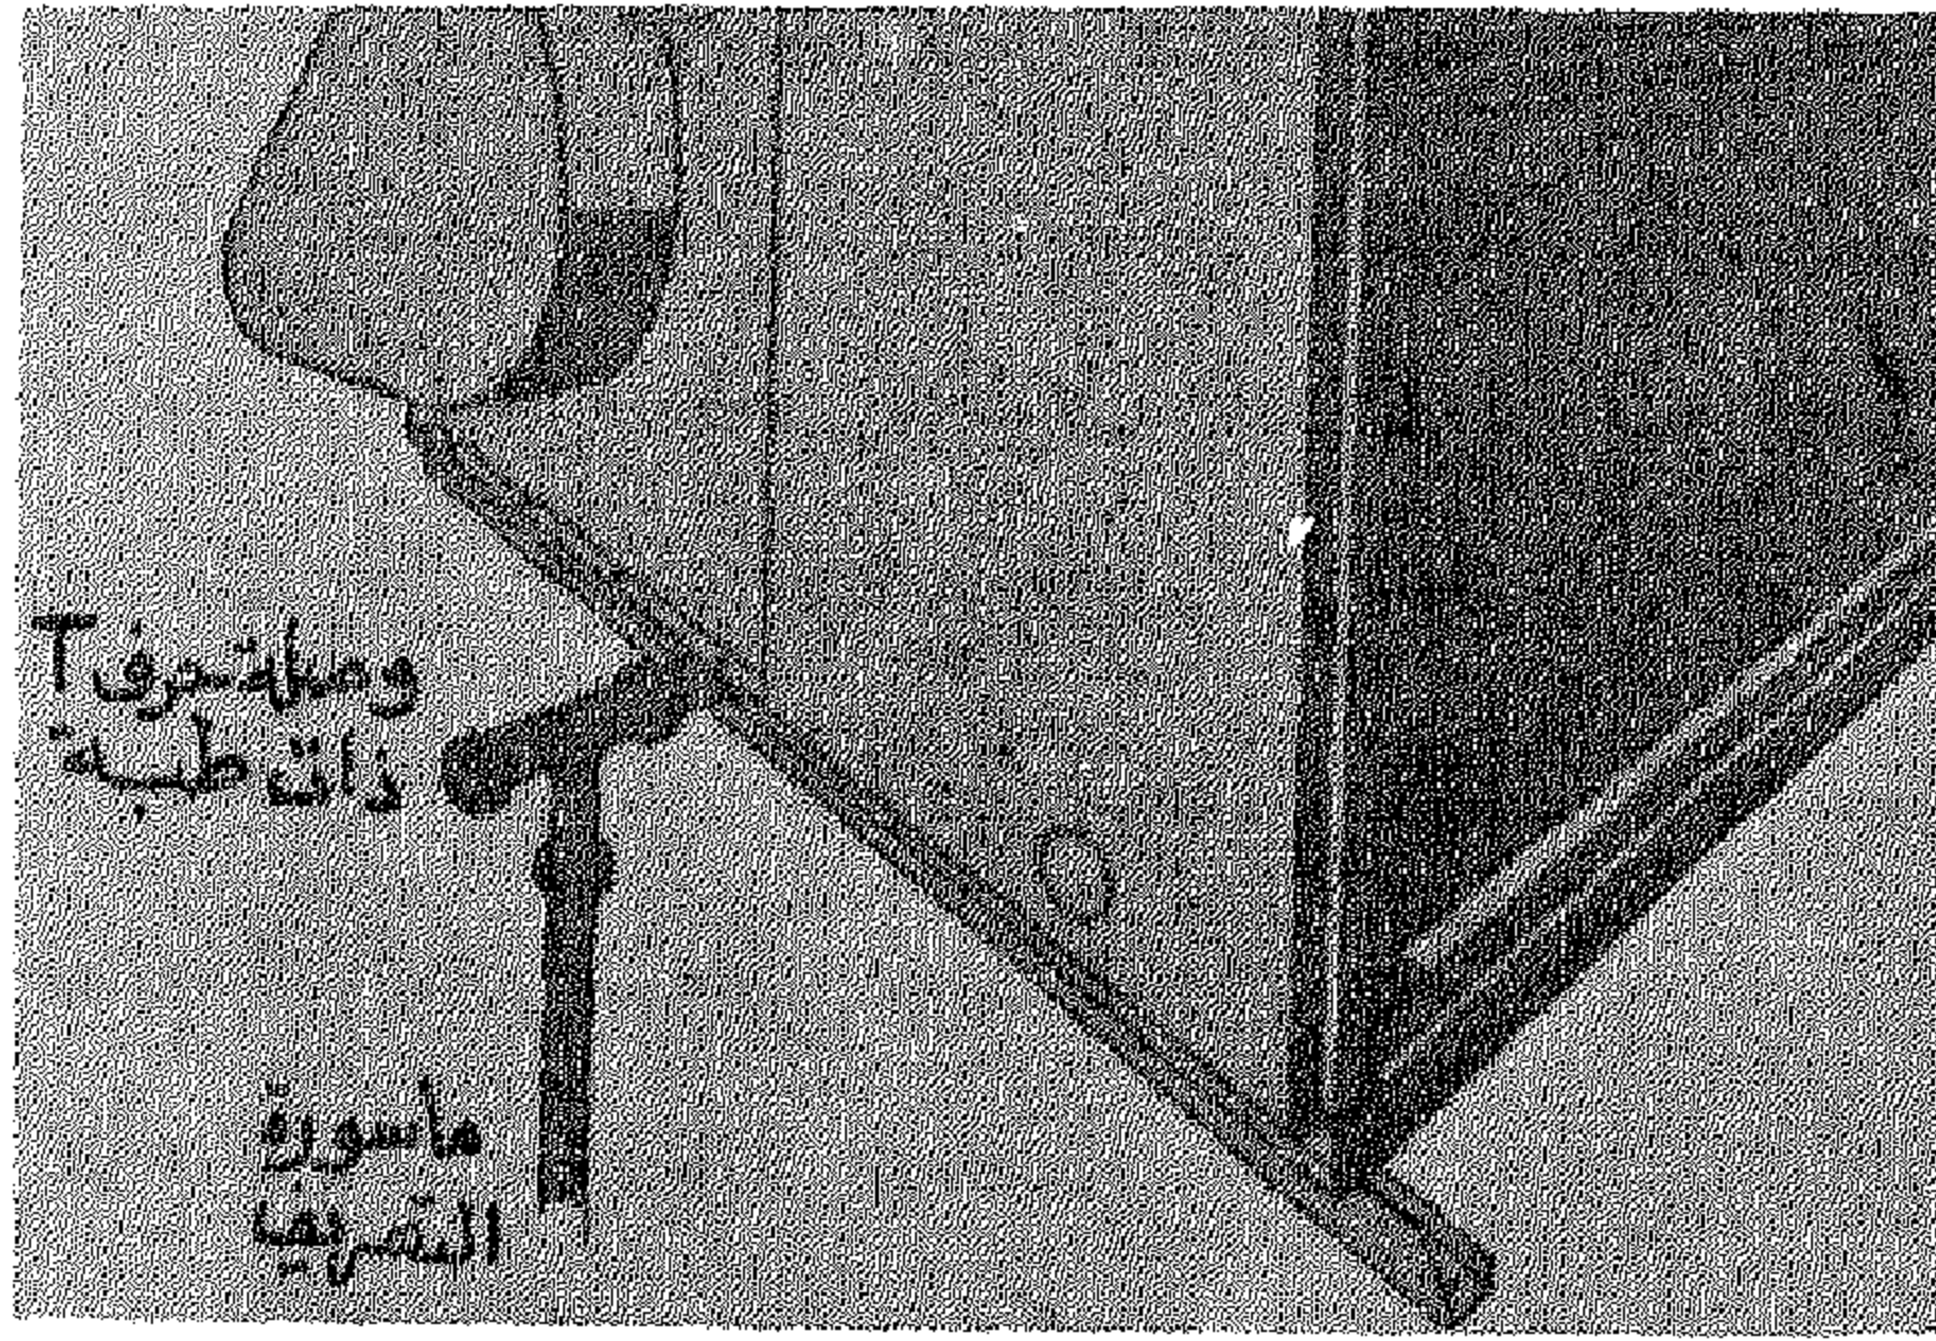 وصلة حرف T
ذات طبة
ماسورة
التصريف